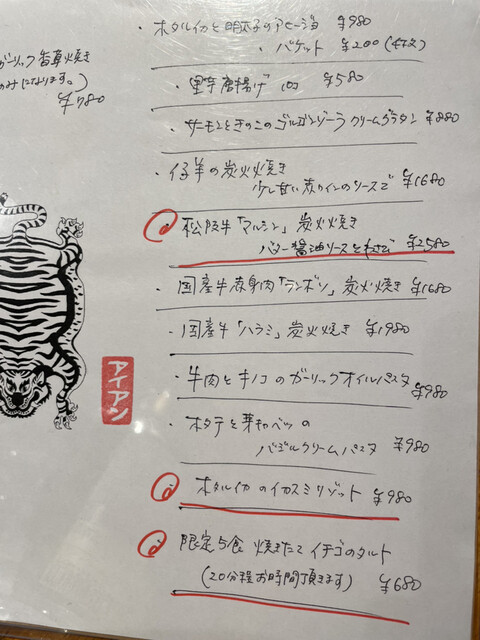 ・ホタルイカと明太子のアヒージョ ¥980
・バゲット ¥200(4枚)
ガーリック香草焼き
のみになります。)
¥780
・里芋唐揚げ ¥580
・サーモンときのこのゴルゴンゾーラクリームグラタン ¥880
・仔羊の炭火焼き
少し甘い赤ワインのソースで ¥1680
松阪牛「マルシン」炭火焼き
バター醤油ソースとわさび ¥2580
・国産牛赤身肉「ランボソ」炭火焼き ¥1680
・国産牛「ハラミ」炭火焼き ¥1980
・牛肉とキノコのガーリックオイルパスタ ¥980
アイアン
・ホタテと芽キャベツの
バジルクリームパスタ ¥980
ホタルイカのイカスミリゾット ¥980
限定5食 焼きたてイチゴのタルト
(20分程お時間頂きます) ¥680